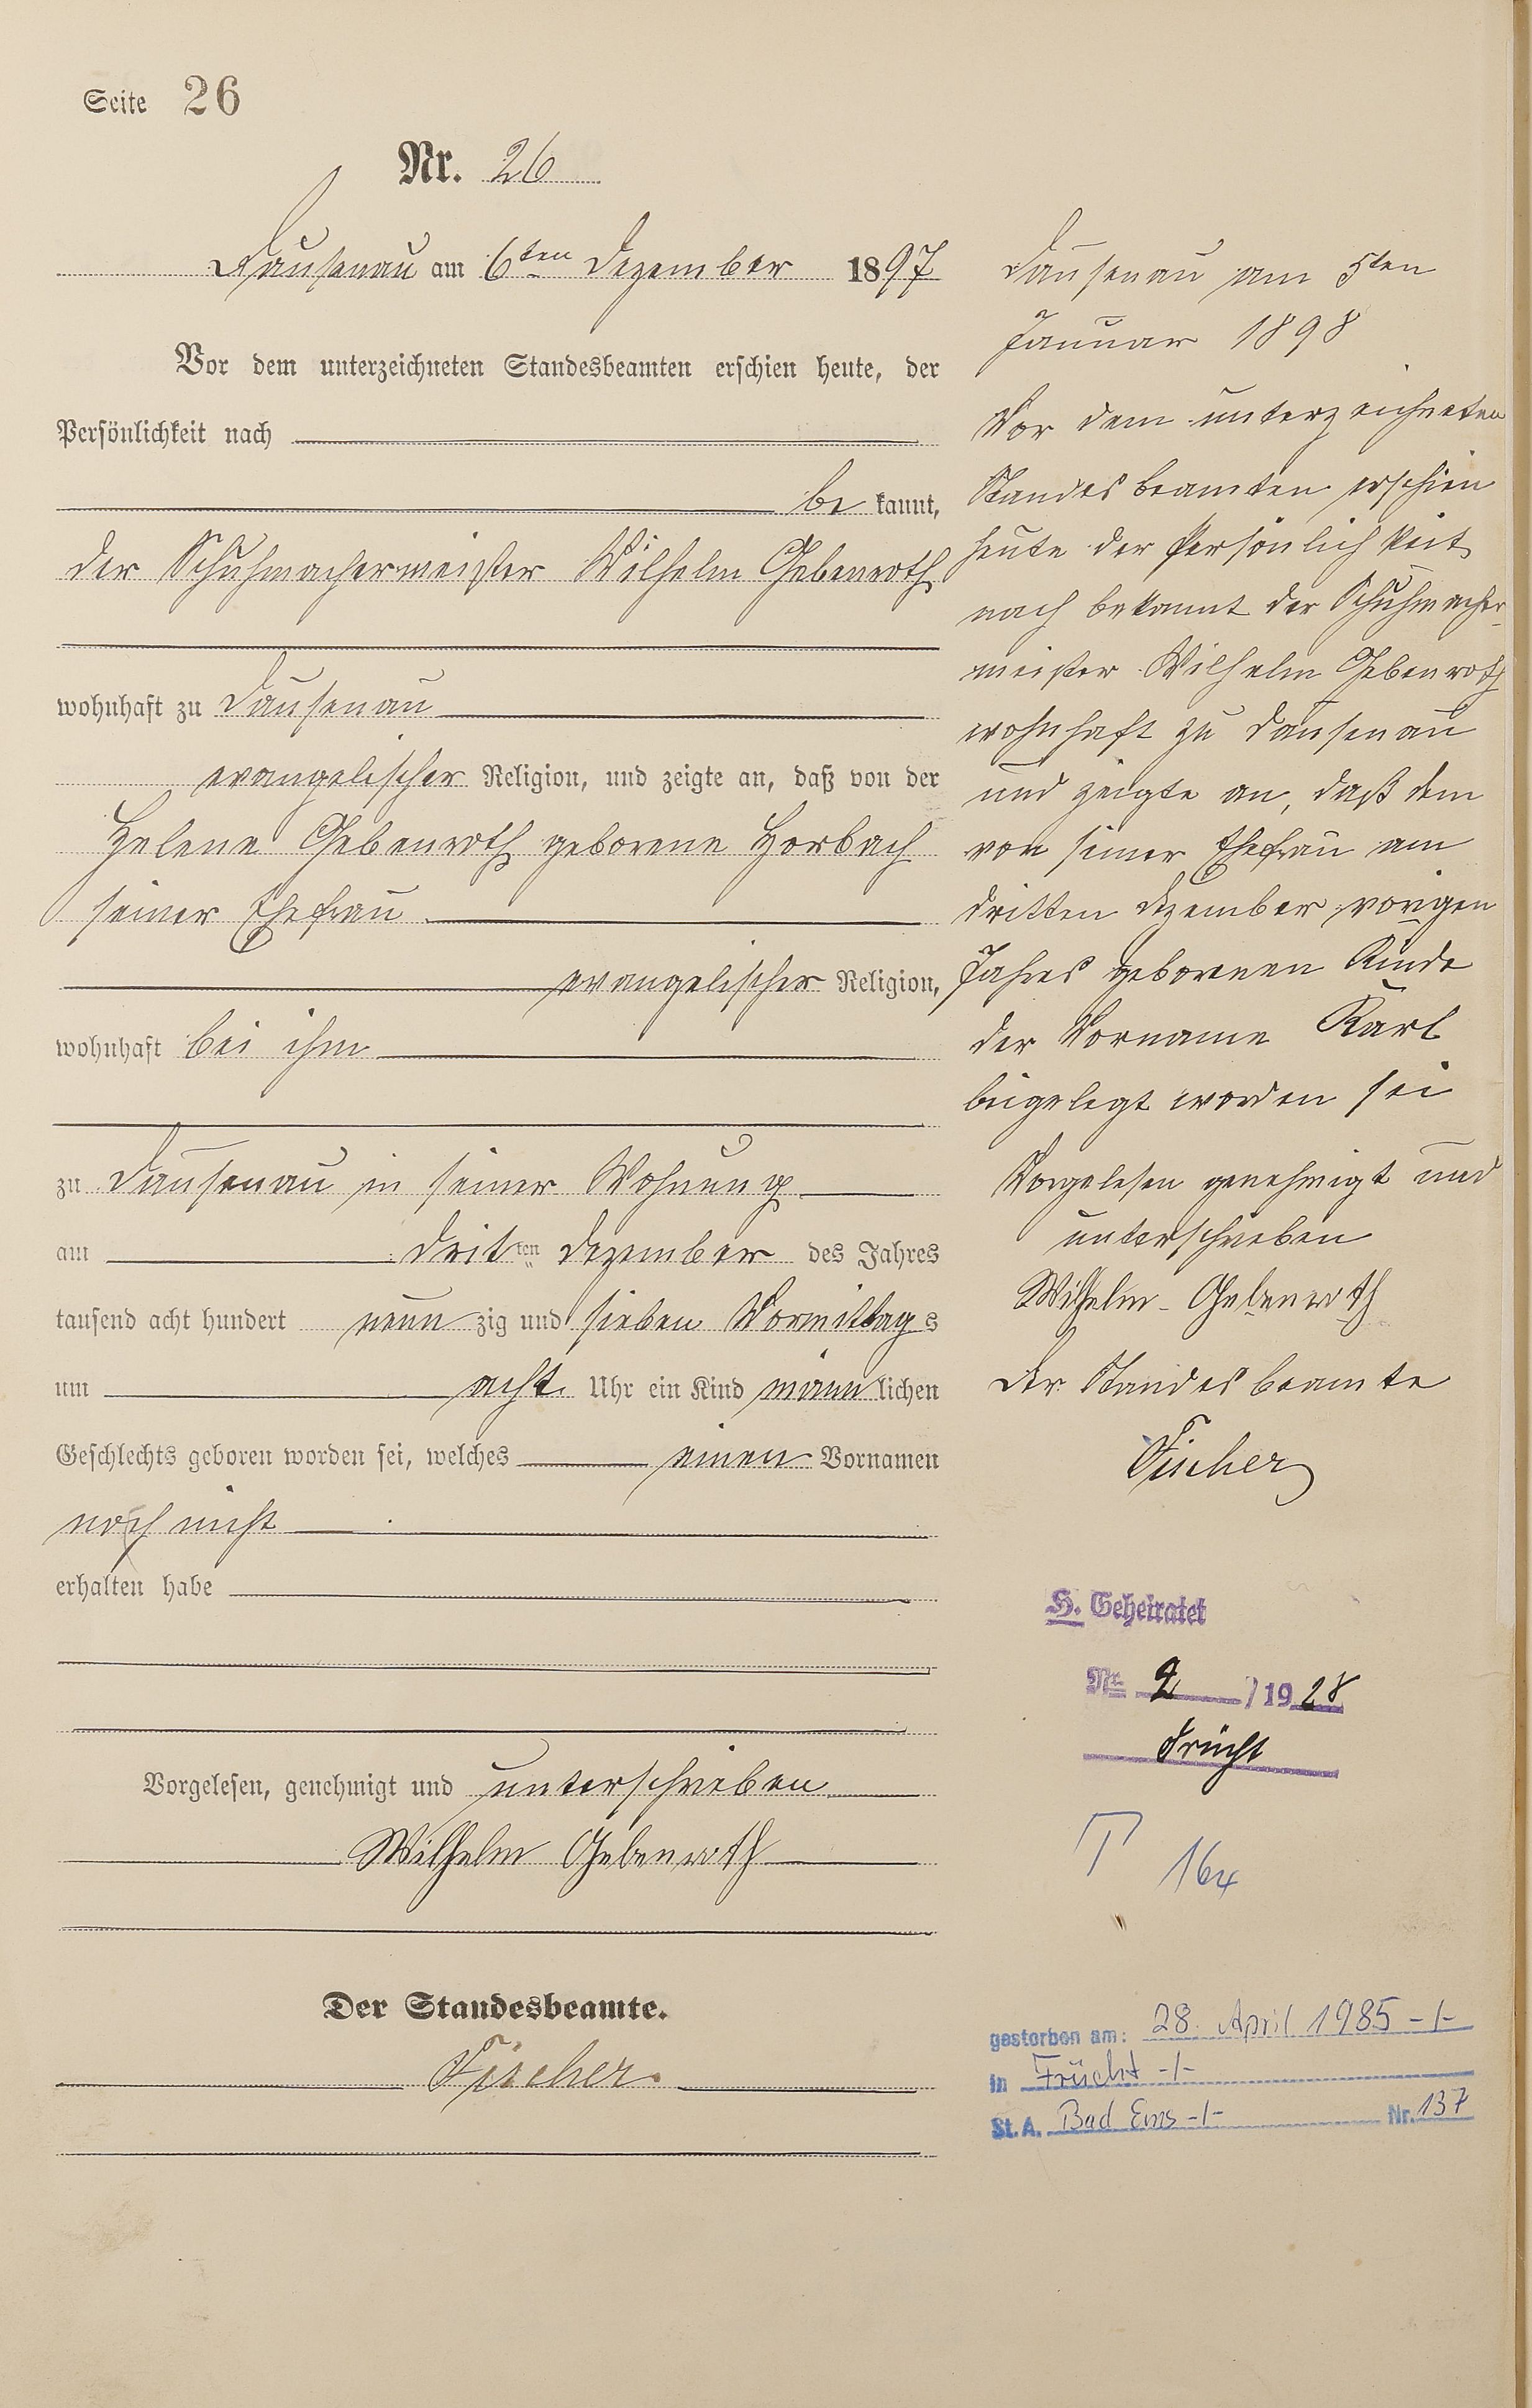 Seite 26
Nr. 26
Dausenau am 6ten Dezember 1897
Vor dem unterzeichneten Standesbeamten erschien heute, der
Persönlichkeit nach
be kannt,
der Schuhmachermeister Wilhelm Gebenroth
wohnhaft zu Dausenau
evangelischer Religion, und zeigte an, daß von der
Helene Gebenroth geborene Horbach
seiner Ehefrau
evangelischer Religion,
wohnhaft bei ihm
zu Dausenau in seiner Wohnung
am dritten Dezember des Jahres
tausend acht hundert neun zig und sieben Vormittags
um acht Uhr ein Kind männlichen
Geschlechts geboren worden sei, welches einen Vornamen
noch nicht
erhalten habe
Vorgelesen, genehmigt und unterschrieben
Wilhelm Gebenroth
Der Standesbeamte.
Fischer
Dausenau am 5ten
Januar 1898
Vor dem unterzeichneten
Standesbeamten erschien
heute der Persönlichkeit
nach bekannt der Schuhmacher-
meister Wilhelm Gebenroth
wohnhaft zu Dausenau
und zeigte an, daß dem
von seiner Ehefrau am
dritten Dezember vorigen
Jahres geborenen Kinde
der Vorname Karl
beigelegt worden sei
Vorgelesen genehmigt und
unterschrieben
Wilhelm Gebenroth
Der Standesbeamte
Fischer
H. Geheiratet
Nr. 2 / 1928
Frücht
T 164
gestorben am: 28. April 1985 -/-
in Frücht -/-
St. A. Bad Ems -/- Nr. 137